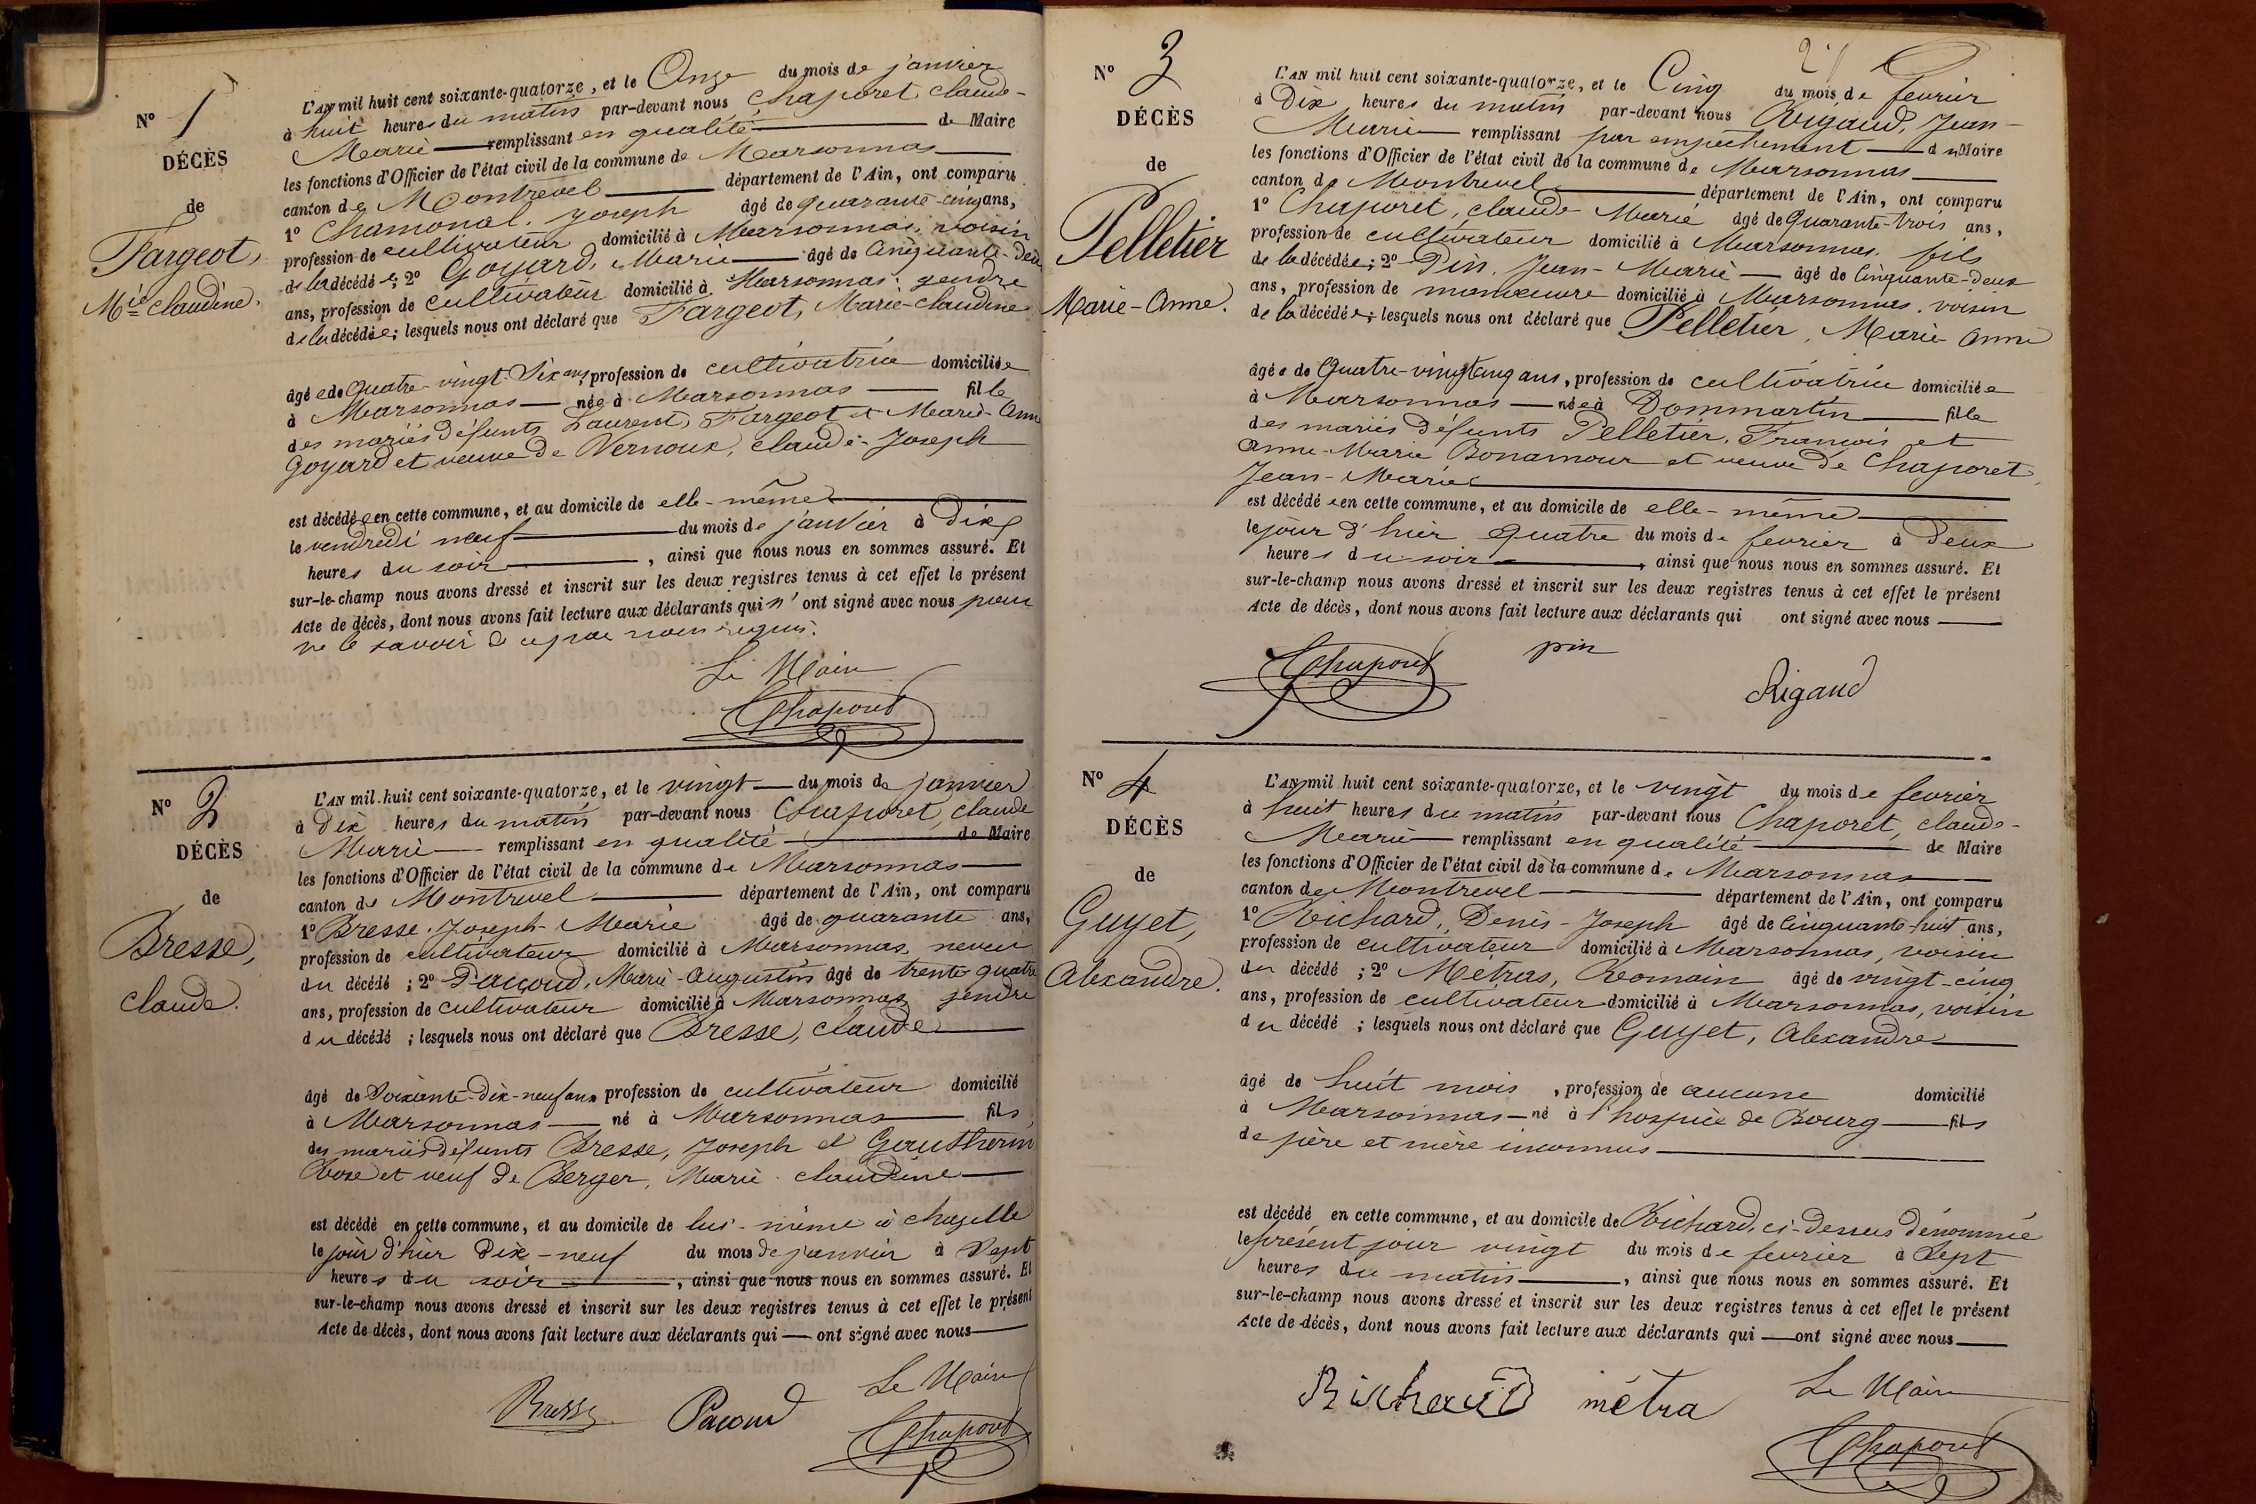 N° 1
DÉCÈS
de
Fargeot,
Mie Claudine.
L'AN mil huit cent soixante-quatorze, et le Onze du mois de janvier
à huit heures du matin par-devant nous Chaporet Claude-
Marie remplissant en qualité de Maire
les fonctions d'Officier de l'état civil de la commune de Marsonnas
canton de Montrevel département de l'Ain, ont comparu
1° Chamonal, Joseph âgé de quarante-cinq ans,
profession de cultivateur domicilié à Marsonnas, voisin
de la décédée; 2° Goyard, Marie âgé de Cinquante-deux
ans, profession de cultivateur domicilié à Marsonnas, gendre
de la décédée; lesquels nous ont déclaré que Fargeot, Marie-Claudine
âgée de Quatre-vingt-Six ans, profession de cultivatrice domiciliée
à Marsonnas née à Marsonnas fille
des mariés défunts Laurent Fargeot et Marie-Anne
Goyard et veuve de Vernoux, Claude-Joseph
est décédée en cette commune, et au domicile de elle-même
le vendredi neuf du mois de janvier à Dix
heures du soir, ainsi que nous nous en sommes assuré. Et
sur-le-champ nous avons dressé et inscrit sur les deux registres tenus à cet effet le présent
Acte de décès, dont nous avons fait lecture aux déclarants qui n'ont signé avec nous pour
ne le savoir de ce par nous requis.
Le Maire
Chaporet
N° 2
DÉCÈS
de
Bresse,
Claude.
L'AN mil huit cent soixante-quatorze, et le vingt du mois de janvier
à Dix heures du matin par-devant nous Chaporet, Claude
Marie remplissant en qualité de Maire
les fonctions d'Officier de l'état civil de la commune de Marsonnas
canton de Montrevel département de l'Ain, ont comparu
1° Bresse, Joseph-Marie âgé de quarante ans,
profession de cultivateur domicilié à Marsonnas, neveu
du décédé; 2° Pacoud, Marie-Augustin âgé de trente quatre
ans, profession de cultivateur domicilié à Marsonnas, gendre
du décédé; lesquels nous ont déclaré que Bresse, Claude
âgé de Soixante-Dix-neuf ans profession de cultivateur domicilié
à Marsonnas né à Marsonnas fils
des mariés défunts Bresse, Joseph et Gautherin
Rose et veuf de Berger, Marie Claudine
est décédé en cette commune, et au domicile de lui-même à Chazelle
le jour d'hier Dix-neuf du mois de janvier à Sept
heures du soir, ainsi que nous nous en sommes assuré. Et
sur-le-champ nous avons dressé et inscrit sur les deux registres tenus à cet effet le présent
Acte de décès, dont nous avons fait lecture aux déclarants qui ont signé avec nous
Le Maire
Bresse Pacoud
Chaporet
N° 3
DÉCÈS
de
Pelletier
Marie-Anne.
L'AN mil huit cent soixante-quatorze, et le Cinq du mois de fevrier
à Dix heures du matin par-devant nous Rigaud, Jean-
Marie remplissant par empechement du Maire
les fonctions d'Officier de l'état civil de la commune de Marsonnas
canton de Montrevel département de l'Ain, ont comparu
1° Chaporet, Claude Marie âgé de Quarante-trois ans,
profession de cultivateur domicilié à Marsonnas, fils
de la décédée; 2° Pin, Jean-Marie âgé de Cinquante-deux
ans, profession de manoeuvre domicilié à Marsonnas, voisin
de la décédée; lesquels nous ont déclaré que Pelletier, Marie Anne
âgée de Quatre-vingt cinq ans, profession de cultivatrice domiciliée
à Marsonnas née à Dommartin fille
des mariés défunts Pelletier, François et
Anne-Marie Bonamour et veuve de Chaporet
Jean-Marie
est décédée en cette commune, et au domicile de elle-même
le jour d'hier Quatre du mois de fevrier à Deux
heures du soir, ainsi que nous nous en sommes assuré. Et
sur-le-champ nous avons dressé et inscrit sur les deux registres tenus à cet effet le présent
Acte de décès, dont nous avons fait lecture aux déclarants qui ont signé avec nous
Chaporet pin
Rigaud
N° 4
DÉCÈS
de
Guyet,
Alexandre.
L'AN mil huit cent soixante-quatorze, et le vingt du mois de fevrier
à huit heures du matin par-devant nous Chaporet, Claude-
Marie remplissant en qualité de Maire
les fonctions d'Officier de l'état civil de la commune de Marsonnas
canton de Montrevel département de l'Ain, ont comparu
1° Richard, Denis-Joseph âgé de Cinquante-huit ans,
profession de cultivateur domicilié à Marsonnas, voisin
du décédé; 2° Métras, Romain âgé de vingt-cinq
ans, profession de cultivateur domicilié à Marsonnas, voisin
du décédé; lesquels nous ont déclaré que Guyet, Alexandre
âgé de huit mois, profession de aucune domicilié
à Marsonnas né à l'hospice de Bourg fils
de père et mère inconnus
est décédé en cette commune, et au domicile de Richard, ci-dessus dénommé
le présent jour vingt du mois de fevrier à Sept
heures du matin, ainsi que nous nous en sommes assuré. Et
sur-le-champ nous avons dressé et inscrit sur les deux registres tenus à cet effet le présent
Acte de décès, dont nous avons fait lecture aux déclarants qui ont signé avec nous
Richard métra Le Maire
Chaporet